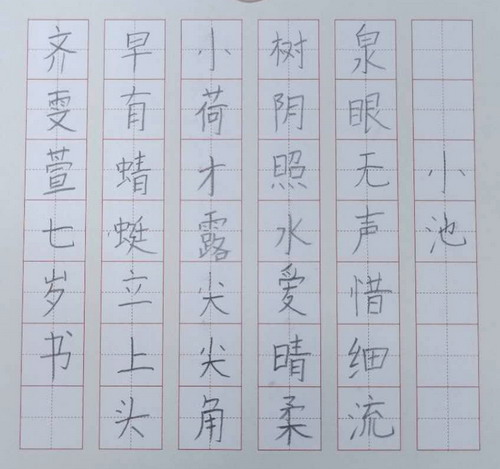 小池
泉眼无声惜细流
树阴照水爱晴柔
小荷才露尖尖角
早有蜻蜓立上头
齐雯萱七岁书